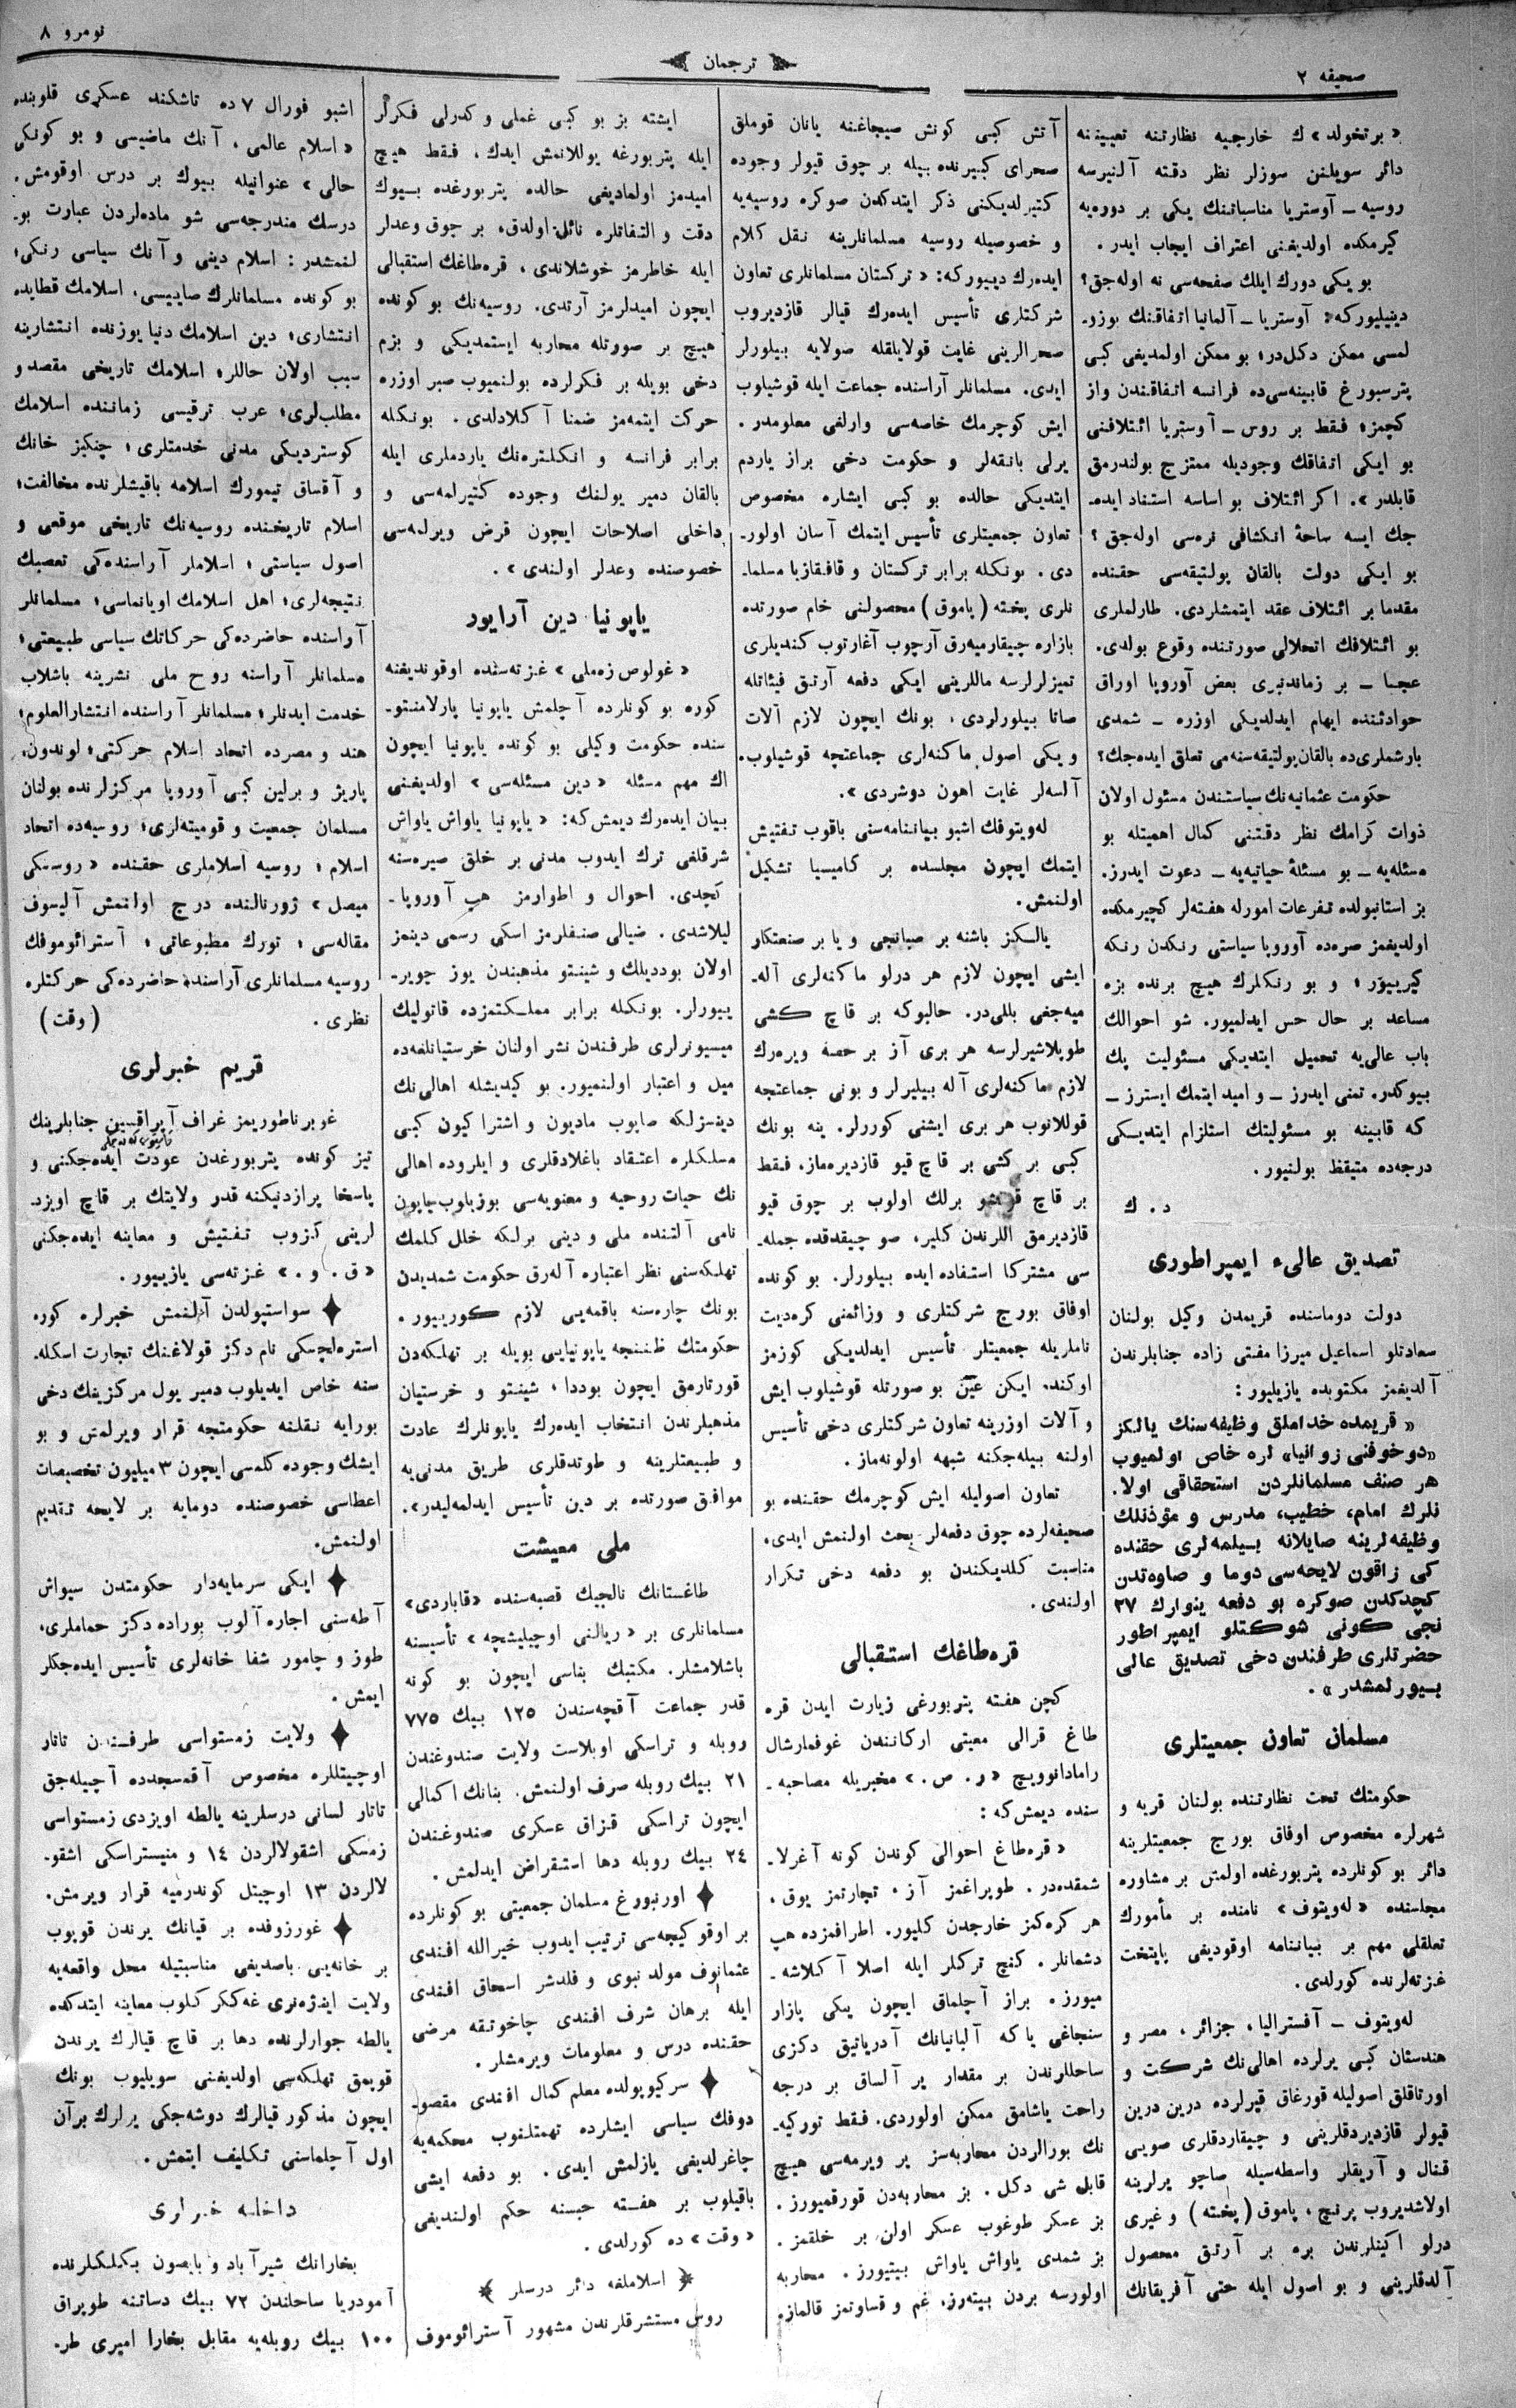 صحیفه ٢
ترجمان
نومرو ٨
« برتخولد » ك خارجیه نظارتنه تعییننه
دائر سویلنن سوزلر نظر دقته آلنیرسه
روسیه ــ آوستریا مناسباتنك یکی بر دوره‌یه
کیرمکده اولدیغنی اعتراف ایجاب ایدر .
بو یکی دورك ایلك صفحه‌سی نه اوله‌جق؟
دینیلیورکه: آوستریا ــ آلمانیا اتفاقنك بوزو-
لمسی ممکن دکل‌در؛ بو ممکن اولمدیغی کبی
پترسبورغ قابینه‌سی‌ده فرانسه اتفاقندن واز
کچمز؛ فقط بر روس ــ آوستریا ائتلافنی
بو ایکی اتفاقك وجودیله ممتزج بولندرمق
قابلدر ». اکر ائتلاف بو اساسه استناد ایده-
جك ایسه ساحۀ انکشافی نره‌سی اوله‌جق ؟
بو ایکی دولت بالقان پولتیقه‌سی حقنده
مقدما بر ائتلاف عقد ایتمشلردی. طارلملری
بو ائتلافك انحلالی صورتنده وقوع بولدی.
عجبا ــ بر زماندنبری بعض آوروپا اوراق
حوادثنده ایهام ایدلدیکی اوزره ــ شمدی
بارشملری‌ده بالقان پولتیقه‌سنه‌می تعلق ایده‌جك؟
حکومت عثمانیه‌نك سیاستندن مسئول اولان
ذوات کرامك نظر دقتنی کمال اهمیتله بو
مسئله‌یه ــ بو مسئلۀ حیاتیه‌یه ــ دعوت ایدرز.
بز استانبولده تفرعات امورله هفته‌لر کچیرمکده
اولدیغمز صره‌ده آوروپا سیاستی رنکدن رنکه
کیرییور ؛ و بو رنکلرك هیچ برنده بزه
مساعد بر حال حس ایدلمیور. شو احوالك
باب عالی‌یه تحمیل ایتدیکی مسئولیت پك
بیوکدر. تمنی ایدرز ــ و امید ایتمك ایسترز ــ
که قابینه بو مسئولیتك استلزام ایتدیکی
درجه‌ده متیقظ بولنیور .
د . ك
تصدیق عالیء ایمپراطوری
دولت دوماسنده قریمدن وکیل بولنان
سعادتلو اسماعیل میرزا مفتی زاده جنابلرندن
آلدیغمز مکتوبده یازیلیور :
« قریمده خداملق وظیفه‌سنك یالکز
«دوخوفنی زوانیا» لره خاص اولمیوب
هر صنف مسلمانلردن استحقاقی اولا.
نلرك امام، خطیب، مدرس و مؤذنلك
وظیفه‌لرینه صایلانه بیلمه‌لری حقنده
کی زاقون لایحه‌سی دوما و صاوه‌تدن
کچدکدن صوکره بو دفعه ینوارك ٢٧
نجی کونی شوکتلو ایمپراطور
حضرتلری طرفندن دخی تصدیق عالی
بیورلمشدر » .
مسلمان تعاون جمعیتلری
حکومتك تحت نظارتنده بولنان قریه و
شهرلره مخصوص اوفاق بورج جمعیتلرینه
دائر بو کونلرده پتربورغده اولمتن بر مشاوره
مجلسنده « له‌ویتوف » نامنده بر مأمورك
تعلقلی مهم بر بیاننامه اوقودیغی پایتخت
غزته‌لرنده کورلدی.
له‌ویتوف ــ آفسترالیا ، جزائر ، مصر و
هندستان کبی یرلرده اهالی‌نك شرکت و
اورتاقلق اصولیله قورغاق قیرلرده درین درین
قیولر قازدیردقلرینی و چیقاردقلری صویی
قنال و آریقلر واسطه‌سیله صاچو یرلرینه
اولاشدیروب پرنچ ، پاموق ( پخته ) و غیری
درلو اکینلرندن بره بر آرتق محصول
آلدقلرینی و بو اصول ایله حتی آفریقانك
آتش کبی کونش صیجاغنه یانان قوملق
صحرای کبیرنده بیله بر چوق قیولر وجوده
کتیرلدیکنی ذکر ایتدکدن صوکره روسیه‌یه
و خصوصیله روسیه مسلمانلرینه نقل کلام
ایده‌رك دییورکه: « ترکستان مسلمانلری تعاون
شرکتلری تأسیس ایده‌رك قیالر قازدیروب
صحرالرینی غایت قولایلقله صولایه بیلورلر
ایدی. مسلمانلر آراسنده جماعت ایله قوشیلوب
ایش کوچرمك خاصه‌سی وارلغی معلومدر .
یرلی بانقه‌لر و حکومت دخی براز یاردم
ایتدیکی حالده بو کبی ایشاره مخصوص
تعاون جمعیتلری تأسیس ایتمك آسان اولور-
دی . بونکله برابر ترکستان و قافقازیا مسلما-
نلری پخته ( پاموق ) محصولنی خام صورتده
بازاره چیقارمیه‌رق آرچوب آغارتوب کندیلری
تمیزلرلرسه ماللرینی ایکی دفعه آرتق فیئاتله
صاتا بیلورلردی ، بونك ایچون لازم آلات
و یکی اصول ماکنه‌لری جماعتچه قوشیلوب.
آلسه‌لر غایت اهون دوشردی ».
له‌ویتوفك اشبو بیاننامه‌سنی باقوب تفتیش
ایتمك ایچون مجلسده بر کامیسیا تشکیل
اولنمش .
یالکز باشنه بر صبانجی و یا بر صنعتکار
ایشی ایچون لازم هر درلو ماکنه‌لری آله-
میه‌جغی بللی‌در. حالبوکه بر قاچ کشی
طوپلاشیرلرسه هر بری آز بر حصه ویره‌رك
لازم ماکنه‌لری آله بیلیرلر و بونی جماعتجه
قوللانوب هر بری ایشنی کوررلر. ینه بونك
کبی بر کشی بر قاچ قیو قازدیره‌ماز، فقط
بر قاچ قومشو برلك اولوب بر چوق قیو
قازدیرمق اللرندن کلیر، صو چیقدقده جمله-
سی مشترکا استفاده ایده بیلورلر. بو کونده
اوفاق بورج شرکتلری و وزائمنی کره‌دیت
ناملریله جمعیتلر تأسیس ایدلدیکی کوزمز
اوکنده ایکن عین بو صورتله قوشیلوب ایش
و آلات اوزرینه تعاون شرکتلری دخی تأسیس
اولنه بیله‌جکنه شبهه اولونه‌ماز .
تعاون اصولیله ایش کوچرمك حقنده بو
صحیفه‌لرده چوق دفعه‌لر بحث اولنمش ایدی،
مناسبت کلدیکندن بو دفعه دخی تکرار
اولندی .
قره‌طاغك استقبالی
کچن هفته پتربورغی زیارت ایدن قره
طاغ قرالی معیتی ارکانندن غوفمارشال
رامادانوویچ « ر . ص . » مخبریله مصاحبه -
سنده دیمش‌که :
« قره‌طاغ احوالی کوندن کونه آغرلا-
شمقده‌در . طوپراغمز آز ، تجارتمز یوق ،
هر کره‌کمز خارجدن کلیور. اطرافمزده هپ
دشمانلر . کنج ترکلر ایله اصلا آکلاشه -
میورز . براز آچلماق ایچون یکی پازار
سنجاغی یا که آلبانیانك آدریاتیق دکزی
ساحللرندن بر مقدار یر آلساق بر درجه
راحت یاشامق ممکن اولوردی. فقط تورکیه-
نك بورالردن محاربه‌سز یر ویرمه‌سی هیچ
قابل شی دکل . بز محاربه‌دن قورقمیورز .
بز عسکر طوغوب عسکر اولن بر خلقمز .
بز شمدی یاواش یاواش بیتیورز . محاربه
اولورسه بردن بیته‌رز. غم و قساوتمز قالماز.
ایشته بز بو کبی غملی و کدرلی فکرلر
ایله پتربورغه یوللانمش ایدك ، فقط هیچ
امیدمز اولمادیغی حالده پتربورغده بیوك
دقت و التفاتلره نائل اولدق، بر چوق وعدلر
ایله خاطرمز خوشلاندی ، قره‌طاغك استقبالی
ایچون امیدلرمز آرتدی. روسیه‌نك بو کونده
هیچ بر صورتله محاربه ایستمدیکی و بزم
دخی بویله بر فکرلرده بولنمیوب صبر اوزره
حرکت ایتمه‌مز ضمنا آکلادلدی . بونکله
برابر فرانسه و انکلتره‌نك یاردملری ایله
بالقان دمیر یولنك وجوده کتیرلمه‌سی و
داخلی اصلاحات ایچون قرض ویرلمه‌سی
خصوصنده وعدلر اولندی » .
یاپونیا دین آرایور
« غولوص زه‌ملی » غزته‌سنده اوقوندیغنه
کوره بو کونلرده آچلمش یاپونیا پارلامنتو-
سنده حکومت وکیلی بو کونده یاپونیا ایچون
اك مهم مسئله « دین مسئله‌سی » اولدیغنی
بیان ایده‌رك دیمش‌که: « یاپونیا یاواش یاواش
شرقلغی ترك ایدوب مدنی بر خلق صیره‌سنه
کچدی. احوال و اطوارمز هپ آوروپا-
لیلاشدی . ضیالی صنفلرمز اسکی رسمی دینمز
اولان بوددیلك و شینتو مذهبندن یوز چویر-
ییورلر. بونکله برابر مملکتمزده قاتولیك
میسیونرلری طرفندن نشر اولنان خرستیانلغه‌ده
میل و اعتبار اولنمیور. بو کیدیشله اهالی‌نك
دینسزلکه صاپوب مادیون و اشتراکیون کبی
مسلکلره اعتقاد باغلادقلری و ایلروده اهالی
نك حیات روحیه و معنویه‌سی بوزیلوب یاپون
نامی آلتنده ملی و دینی برلکه خلل کلمك
تهلکه‌سنی نظر اعتباره آله‌رق حکومت شمدیدن
بونك چاره‌سنه باقمه‌یی لازم کورییور .
حکومتك ظننجه یاپونیایی بویله بر تهلکه‌دن
قورتارمق ایچون بوددا ، شینتو و خرستیان
مذهبلرندن انتخاب ایده‌رك یاپونلرك عادت
و طبیعتلرینه و طوتدقلری طریق مدنی‌یه
موافق صورتده بر دین تأسیس ایدلمه‌لیدر».
ملی معیشت
طاغستانك نالچیك قصبه‌سنده «قاباردی»
مسلمانلری بر « ریالنی اوچیلیشچه » تأسیسنه
باشلامشلر. مکتبك بناسی ایچون بو کونه
قدر جماعت آقچه‌سندن ١٢٥ بیك ٧٧٥
روبله و تراسکی اوبلاست ولایت صندوغندن
٢١ بیك روبله صرف اولنمش. بنانك اکمالی
ایچون تراسکی قزاق عسکری صندوغندن
٢٤ بیك روبله دها استقراض ایدلمش .
✦ اورنبورغ مسلمان جمعیتی بو کونلرده
بر اوقو کیجه‌سی ترتیب ایدوب خیرالله افندی
عثمانوف مولد نبوی و فلدشر اسحاق افندی
ایله برهان شرف افندی چاخوتقه مرضی
حقنده درس و معلومات ویرمشلر .
✦ سرکیوپولده معلم کمال افندی مقصو-
دوفك سیاسی ایشلرده تهمتلنوب محکمه‌یه
چاغرلدیغی یازلمش ایدی . بو دفعه ایشی
باقیلوب بر هفته حبسنه حکم اولندیغی
« وقت » ده کورلدی .
﴿ اسلاملغه دائر درسلر ﴾
روس مستشرقلرندن مشهور آسترائوموف
اشبو فورال ٧ ده تاشکند عسکری قلوبنده
« اسلام عالمی ، آنك ماضیسی و بو کونکی
حالی » عنوانیله بیوك بر درس اوقومش.
درسك مندرجه‌سی شو ماده‌لردن عبارت بو-
لنمشدر : اسلام دینی و آنك سیاسی رنکی؛
بو کونده مسلمانلرك صاییسی، اسلامك قطایده
انتشاری؛ دین اسلامك دنیا یوزنده انتشارینه
سبب اولان حاللر؛ اسلامك تاریخی مقصد و
مطلب‌لری؛ عرب ترقیسی زماننده اسلامك
کوستردیکی مدنی خدمتلری ؛ چنکیز خانك
و آقساق تیمورك اسلامه باقیشلرنده مخالفت؛
اسلام تاریخنده روسیه‌نك تاریخی موقعی و
اصول سیاستی ؛ اسلاملر آراسنده‌کی تعصبك
نتیجه‌لری؛ اهل اسلامك اویانماسی؛ مسلمانلر
آراسنده حاضرده‌کی حرکاتك سیاسی طبیعتی؛
مسلمانلر آراسنه روح ملی نشرینه باشلاب
خدمت ایدنلر؛ مسلمانلر آراسنده انتشارالعلوم؛
هند و مصرده اتحاد اسلام حرکتی؛ لوندون،
پاریژ و برلین کبی آوروپا مرکزلرنده بولنان
مسلمان جمعیت و قومیته‌لری؛ روسیه‌ده اتحاد
اسلام ؛ روسیه اسلاملری حقنده « روسسکی
میصل » ژورنالنده درج اولنمش آلیسوف
مقاله‌سی ؛ تورك مطبوعاتی ؛ آسترائوموفك
روسیه مسلمانلری آراسنده حاضرده‌کی حرکتلره
نظری . ( وقت )
قریم خبرلری
غوبرناطوریمز غراف آپراقسین جنابلرینك
تیز کونده پتربورغدن عودت ایده‌جکنی و
پاسخا پرازدنیکنه قدر ولایتك بر قاچ اویزد-
لرینی کزوب تفتیش و معاینه ایده‌جکنی
« ق . و . » غزته‌سی یازییور.
✦ سواستپولدن آلنمش خبرلره کوره
استره‌لچسکی نام دکز قولاغنك تجارت اسکله-
سنه خاص ایدیلوب دمیر یول مرکزینك دخی
بورایه نقلنه حکومتجه قرار ویرلمش و بو
ایشك وجوده کلمسی ایچون ٣ میلیون تخصیصات
اعطاسی خصوصنده دومایه بر لایحه تقدیم
اولنمش.
✦ ایکی سرمایه‌دار حکومتدن سیواش
آطه‌سنی اجاره آلوب بوراده دکز حماملری،
طوز و چامور شفا خانه‌لری تأسیس ایده‌جکلر
ایمش .
✦ ولایت زمستواسی طرفندن تاتار
اوچیتللره مخصوص آقمسجدده آچیله‌جق
تاتار لسانی درسلرینه یالطه اویزدی زمستواسی
زمسکی اشقولالردن ١٤ و منیستراسکی اشقو-
لالردن ١٣ اوچیتل کوندرمیه قرار ویرمش.
✦ غورزوفده بر قیانك یرندن قوپوب
بر خانه‌یی باصدیغی مناسبتیله محل واقعه‌یه
ولایت اینژه‌نری غه‌ککر کلوب معاینه ایتدکده
یالطه جوارلرنده دها بر قاچ قیالرك یرندن
قوپمق تهلکه‌سی اولدیغنی سویلیوب بونك
ایچون مذکور قیالرك دوشه‌جکی یرلرك برآن
اول آچلماسنی تکلیف ایتمش .
داخلیه خبرلری
بخارانك شیرآباد و بایصون بکلکلرنده
آمودریا ساحلندن ٧٢ بیك دساتنه طوپراق
١٠٠ بیك روبله‌یه مقابل بخارا امیری طر-